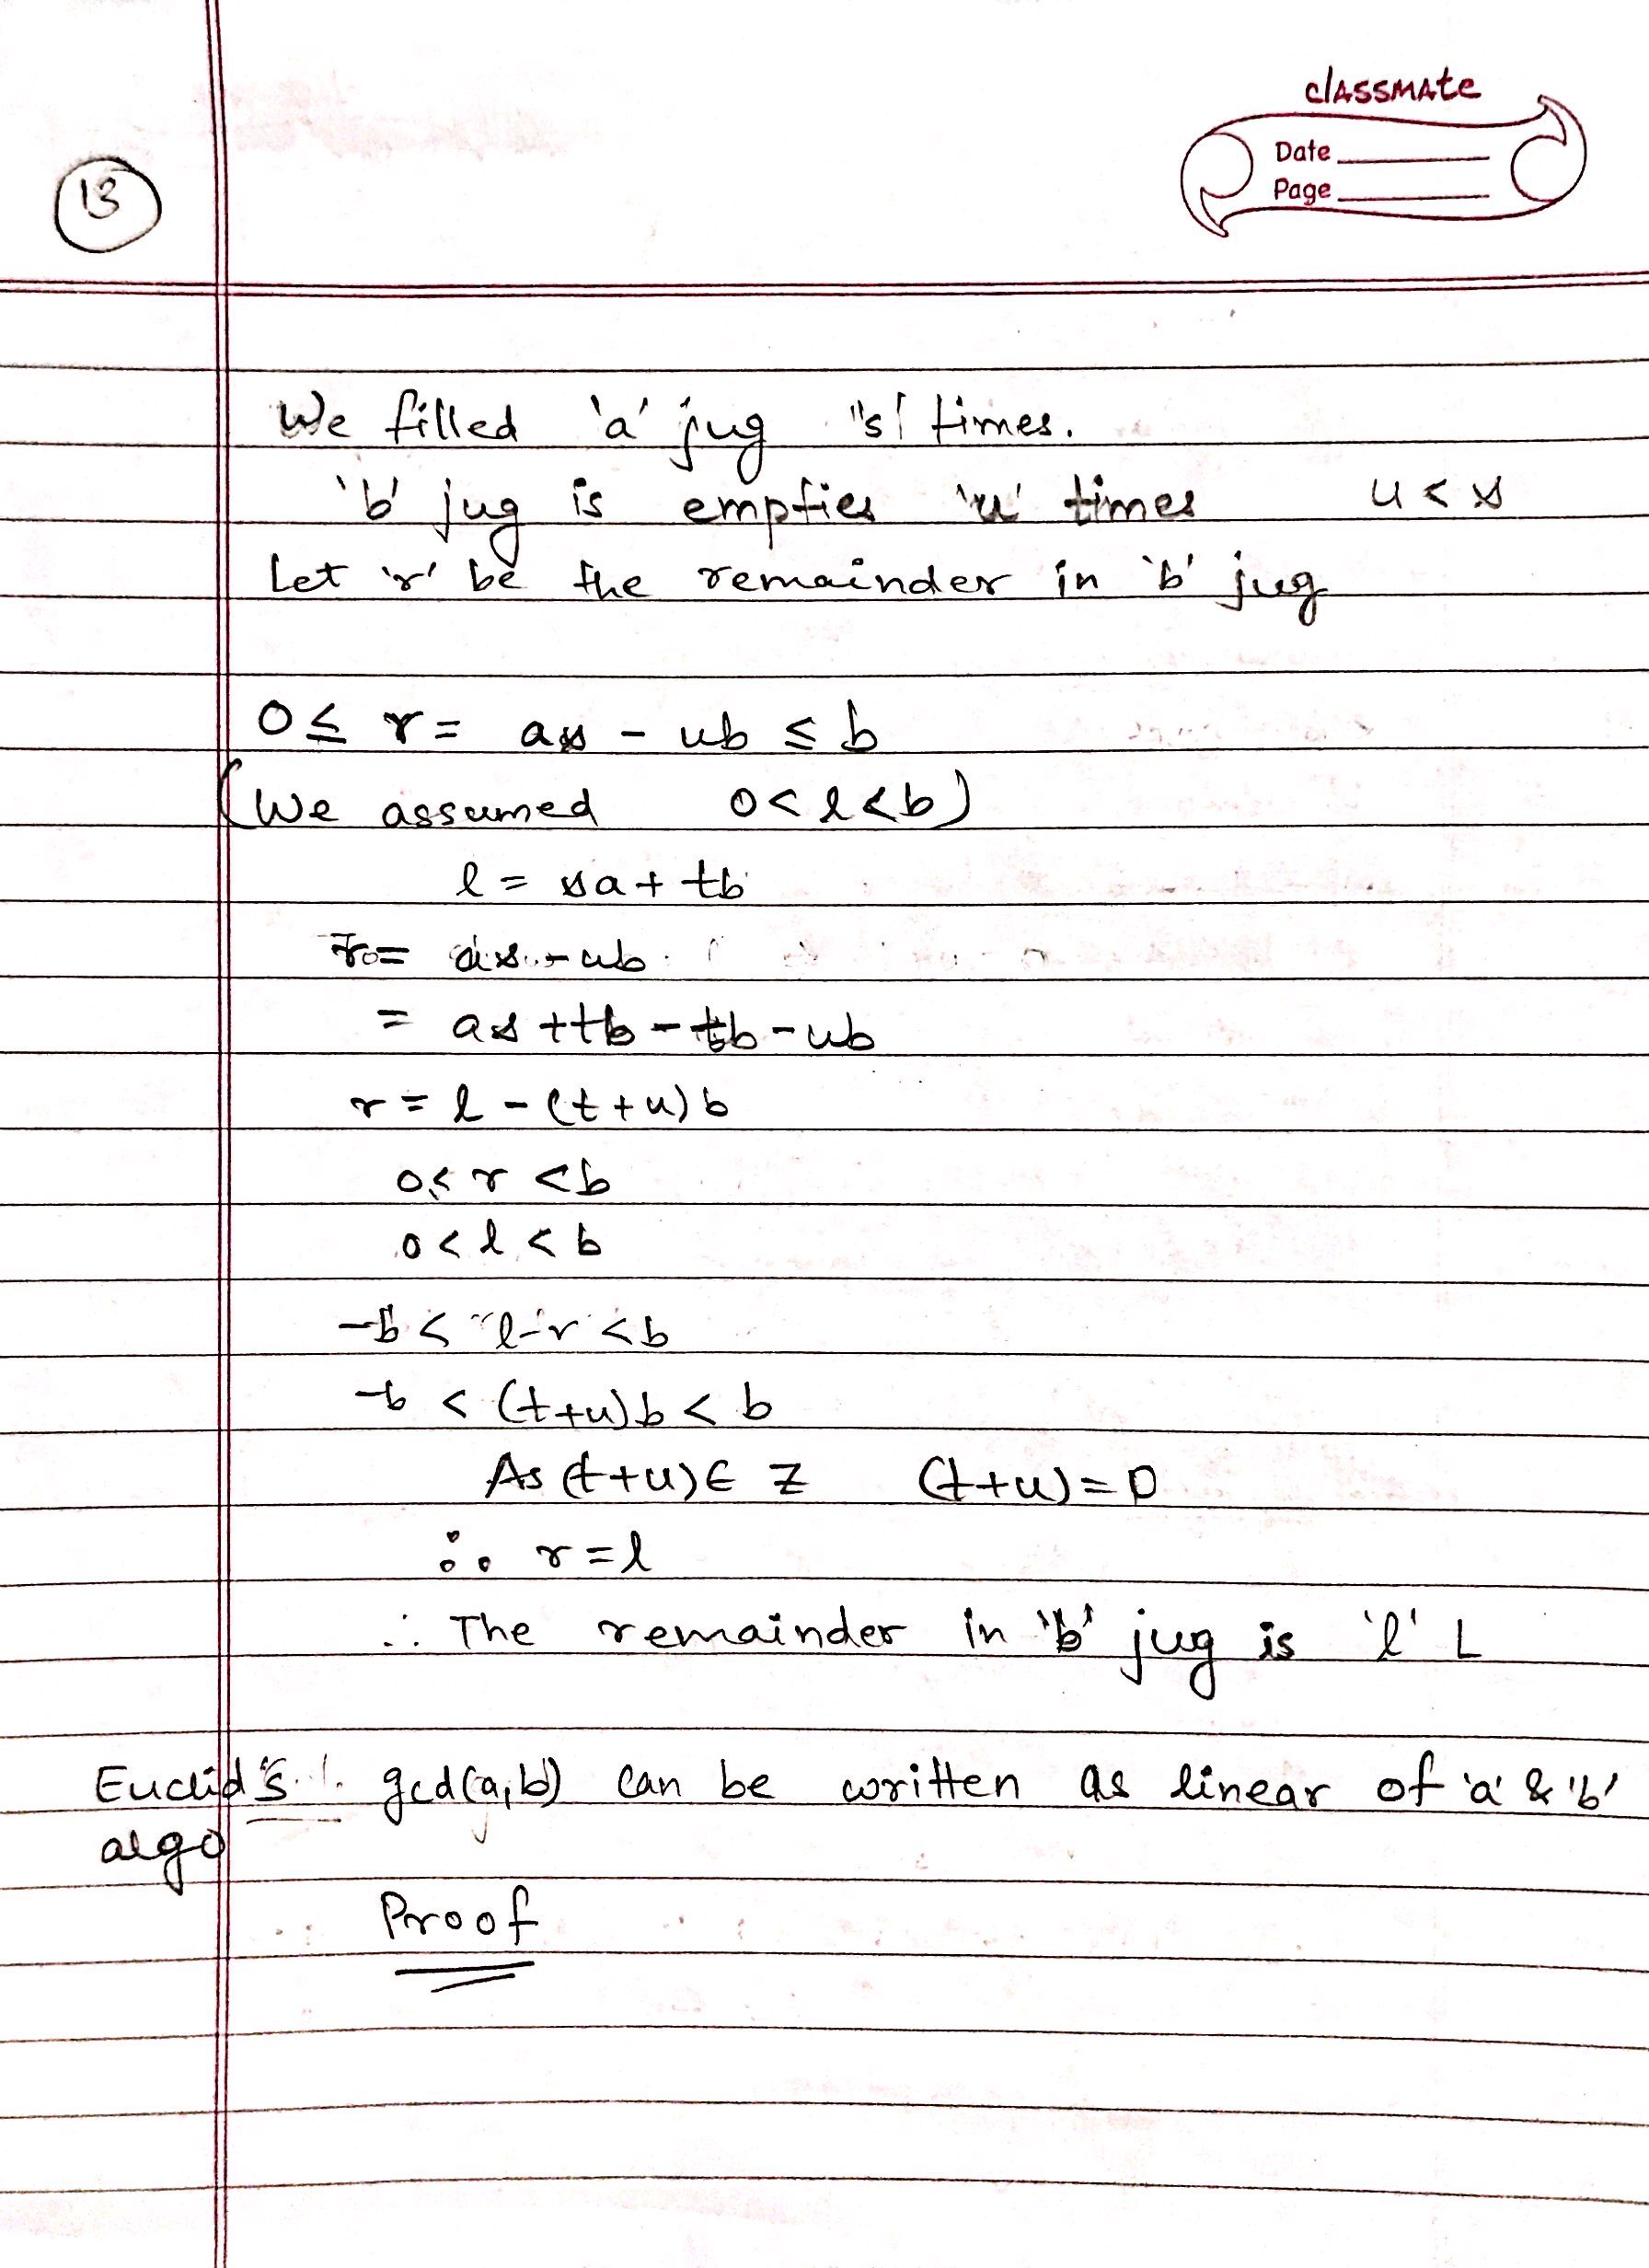 classmate
Date
Page
13
We filled 'a' jug "s" times.
'b' jug is empties 'u' times u < s
Let 'r' be the remainder in 'b' jug
0 ≤ r = as - ub ≤ b
(We assumed 0 < l < b)
l = sa + tb
= as - ub
= as + tb - tb - ub
r = l - (t+u)b
0 ≤ r < b
0 < l < b
-b < l-r < b
-b < (t+u)b < b
As (t+u) ∈ Z (t+u) = 0
∴ r = l
∴ The remainder in 'b' jug is 'l' L
Euclid's gcd(a,b) can be written as linear of 'a' & 'b'
algo
Proof